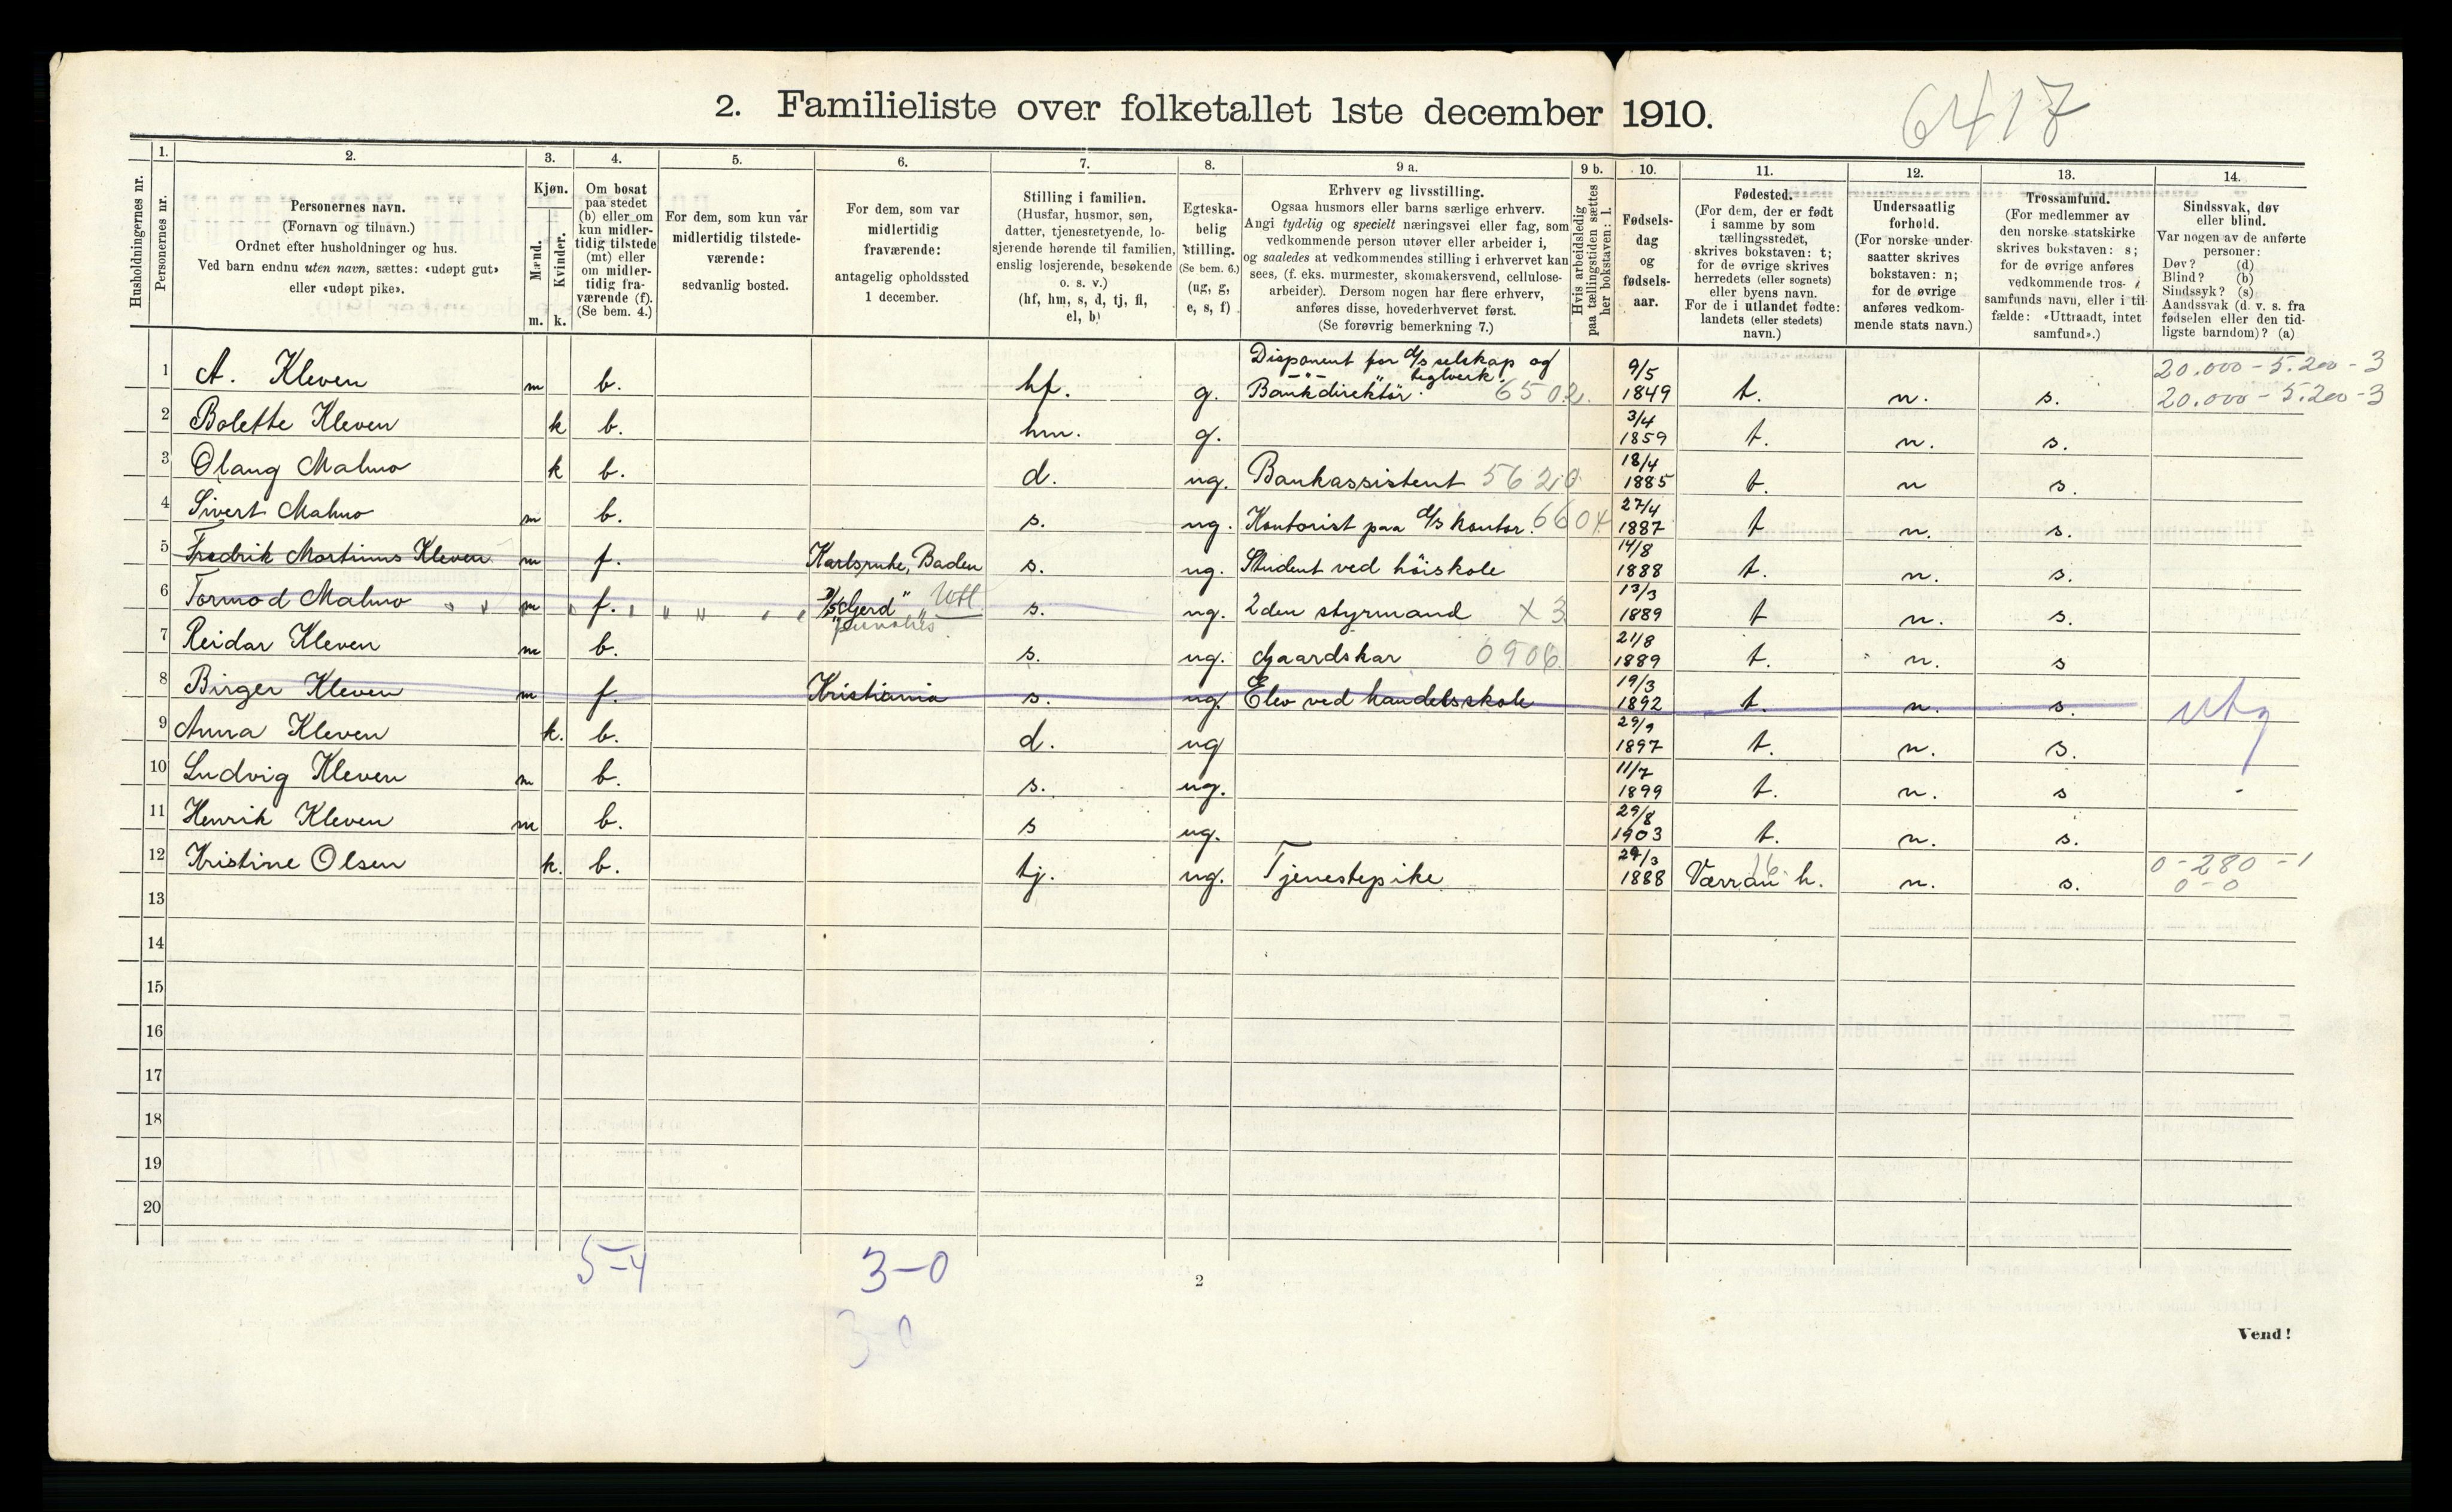 2. Familieliste over folketallet 1ste december 1910.
6417
Husholdningernes nr.
1.
Personernes nr.
2.
Personernes navn.
(Fornavn og tilnavn.)
Ordnet efter husholdninger og hus.
Ved barn endnu uten navn, sættes: «udøpt gut»
eller «udøpt pike».
3.
Kjøn.
Mænd.
Kvinder.
m. k.
4.
Om bosat
paa stedet
(b) eller om
kun midler-
tidig tilstede
(mt) eller
om midler-
tidig fra-
værende (f).
(Se bem. 4.)
5.
For dem, som kun var
midlertidig tilstede-
værende:
sedvanlig bosted.
6.
For dem, som var
midlertidig
fraværende:
antagelig opholdssted
1 december.
7.
Stilling i familien.
(Husfar, husmor, søn,
datter, tjenestetyende, lo-
sjerende hørende til familien,
enslig losjerende, besøkende
o. s. v.)
(hf, hm, s, d, tj, fl,
el, b)
8.
Egteska-
belig
stilling.
(Se bem. 6.)
(ug, g,
e, s, f)
9 a.
Erhverv og livsstilling.
Ogsaa husmors eller barns særlige erhverv.
Angi tydelig og specielt næringsvei eller fag, som
vedkommende person utøver eller arbeider i,
og saaledes at vedkommendes stilling i erhvervet kan
sees, (f. eks. murmester, skomakersvend, cellulose-
arbeider). Dersom nogen har flere erhverv,
anføres disse, hovederhvervet først.
(Se forøvrig bemerkning 7.)
9 b.
Hvis arbeidsledig
paa tællingstiden sættes
her bokstaven: l.
10.
Fødsels-
dag
og
fødsels-
aar.
11.
Fødested.
(For dem, der er født
i samme by som
tællingsstedet,
skrives bokstaven: t;
for de øvrige skrives
herredets (eller sognets)
eller byens navn.
For de i utlandet fødte:
landets (eller stedets)
navn.)
12.
Undersaatlig
forhold.
(For norske under-
saatter skrives
bokstaven: n;
for de øvrige
anføres vedkom-
mende stats navn.)
13.
Trossamfund.
(For medlemmer av
den norske statskirke
skrives bokstaven: s;
for de øvrige anføres
vedkommende tros-
samfunds navn, eller i til-
fælde: «Uttraadt, intet
samfund».)
14.
Sindssvak, døv
eller blind.
Var nogen av de anførte
personer:
Døv? (d)
Blind? (b)
Sindssyk? (s)
Aandssvak (d. v. s. fra
fødselen eller den tid-
ligste barndom)? (a)
1 A. Kleven m b. hf. g. Disponent for d/s selskap og
—"— " teglverk.
Bankdirektör. 6502. 9/5 1849 t. n. s. 20.000 - 5.200 - 3
20.000 - 5.200 - 3
2 Bolette Kleven k b. hm. g. 3/4 1859 t. n. s.
3 Olaug Malmo k b. d. ug. Bankassistent 5620 18/4 1885 t. n s.
4 Sivert Malmo m b. s. ug. Kontorist paa d/s kontor. 6604 27/4 1887 t n. s.
5 Fredrik Martinus Kleven m f. Karlsruhe, Baden s. ug. Student ved höiskole 14/8 1888 t. n. s.
6 Tormod Malmo m f. D/S "Gjerd" Utl s. ug. 2den styrmand X 3 13/3 1889 t n. s.
7 Reidar Kleven m b. s. ug. Gaardskar 0906 21/8 1889 t. n. s
8 Birger Kleven m f. Kristiania s. ug. Elev ved handelsskole 19/3 1892 t. n. s. utg
9 Anna Kleven k. b. d. ug 29/9 1897 t. n. s.
10 Ludvig Kleven m b. s. ug. 11/7 1899 t. n. s -
11 Henrik Kleven m b. s ug. 29/8 1903 t. n. s.
12 Kristine Olsen k. b. tj. ug. Tjenestepike 29/3 1888 Værran h. 16 n. s. 0 - 280 - 1
0 - 0
13
14
15
16
17
18
19
20
5-4 3-0
2
3-0
Vend!